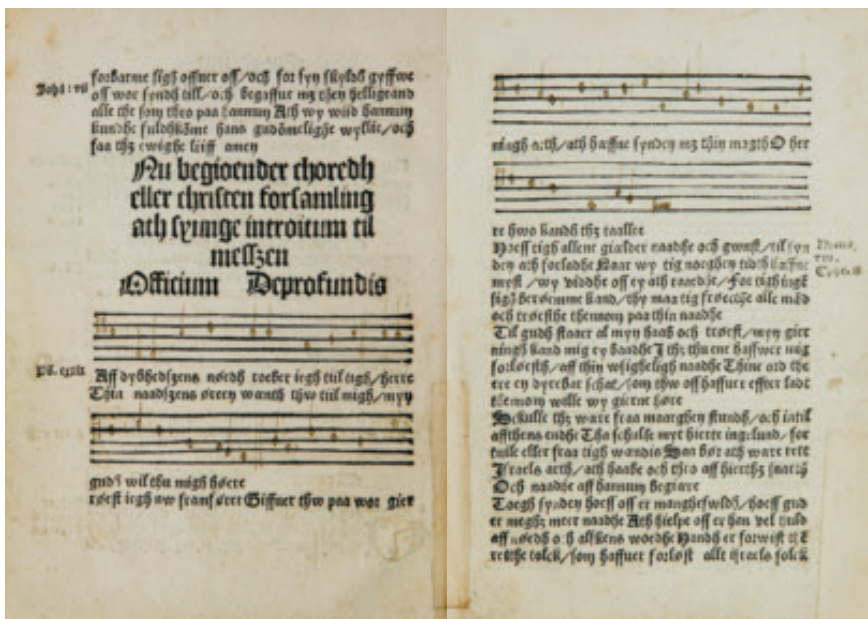 forbarme sigh offuer oss/och for syn skyldh gyffwe
Joha: vii
oss wor syndh till/och begaffue mz then helligeand
alle the som thro paa hannum Ath wy wiid hannum
kundhe fuldhkōme hans gudōmelighe wyllie/och
faa thz ewighe liiff amen
Nu begionder choredh
eller christen forsamling
ath syunge introitum til
meszen
Officium Deprofundis
Aff dybhedszens nødh roeber iegh tiil tigh/herre
Thin naadszens øreen wænth thw tiil migh/myn
gudh wil thu migh høere
røest iegh nw framføret Giffuer thw paa wor gier
ningh acth/ath haffue synden mz thin magth O her
re hwo kandh thz taalle
Hoess tigh allene giælder naadhe och gwnst/til syn
den ath forladhe Naar wy tig noeghen tiidh haffue
myst /wy viddhe oss ey ath raadhe/For tigh ingē
sigh berømme kand/thy maa tig frøecte alle mēd
och trøesthe thennom paa thin naadhe
Til gudh staaer al myn haab och trøest/myn gier
ningh kand mig ey baadhe I thz thuene haffwer mig
forløesth/aff thin wsigheligh naadhe Thine ord the
ere en dyrebar schat/som thw oss haffuer effter ladt
themom wille wy gierne høre
Skulle thz ware fraa maarghen stundh/och intil
affthens endhe Tha schalle myt hierte
tuile eller fraa tigh wændis Saa bør ath ware rett
Israels arth/ath haabe och thro aff hierthz
Och naadhe aff hannum begiare
Toegh synden hoess oss er manghefwldh/hoess gud
er meghz meer naadhe Ath hielpe oss er han vel huld
aff nøedh och alskens woedhe Handh er forwist
retthe tolck/som haffuer forløst alle israels folck